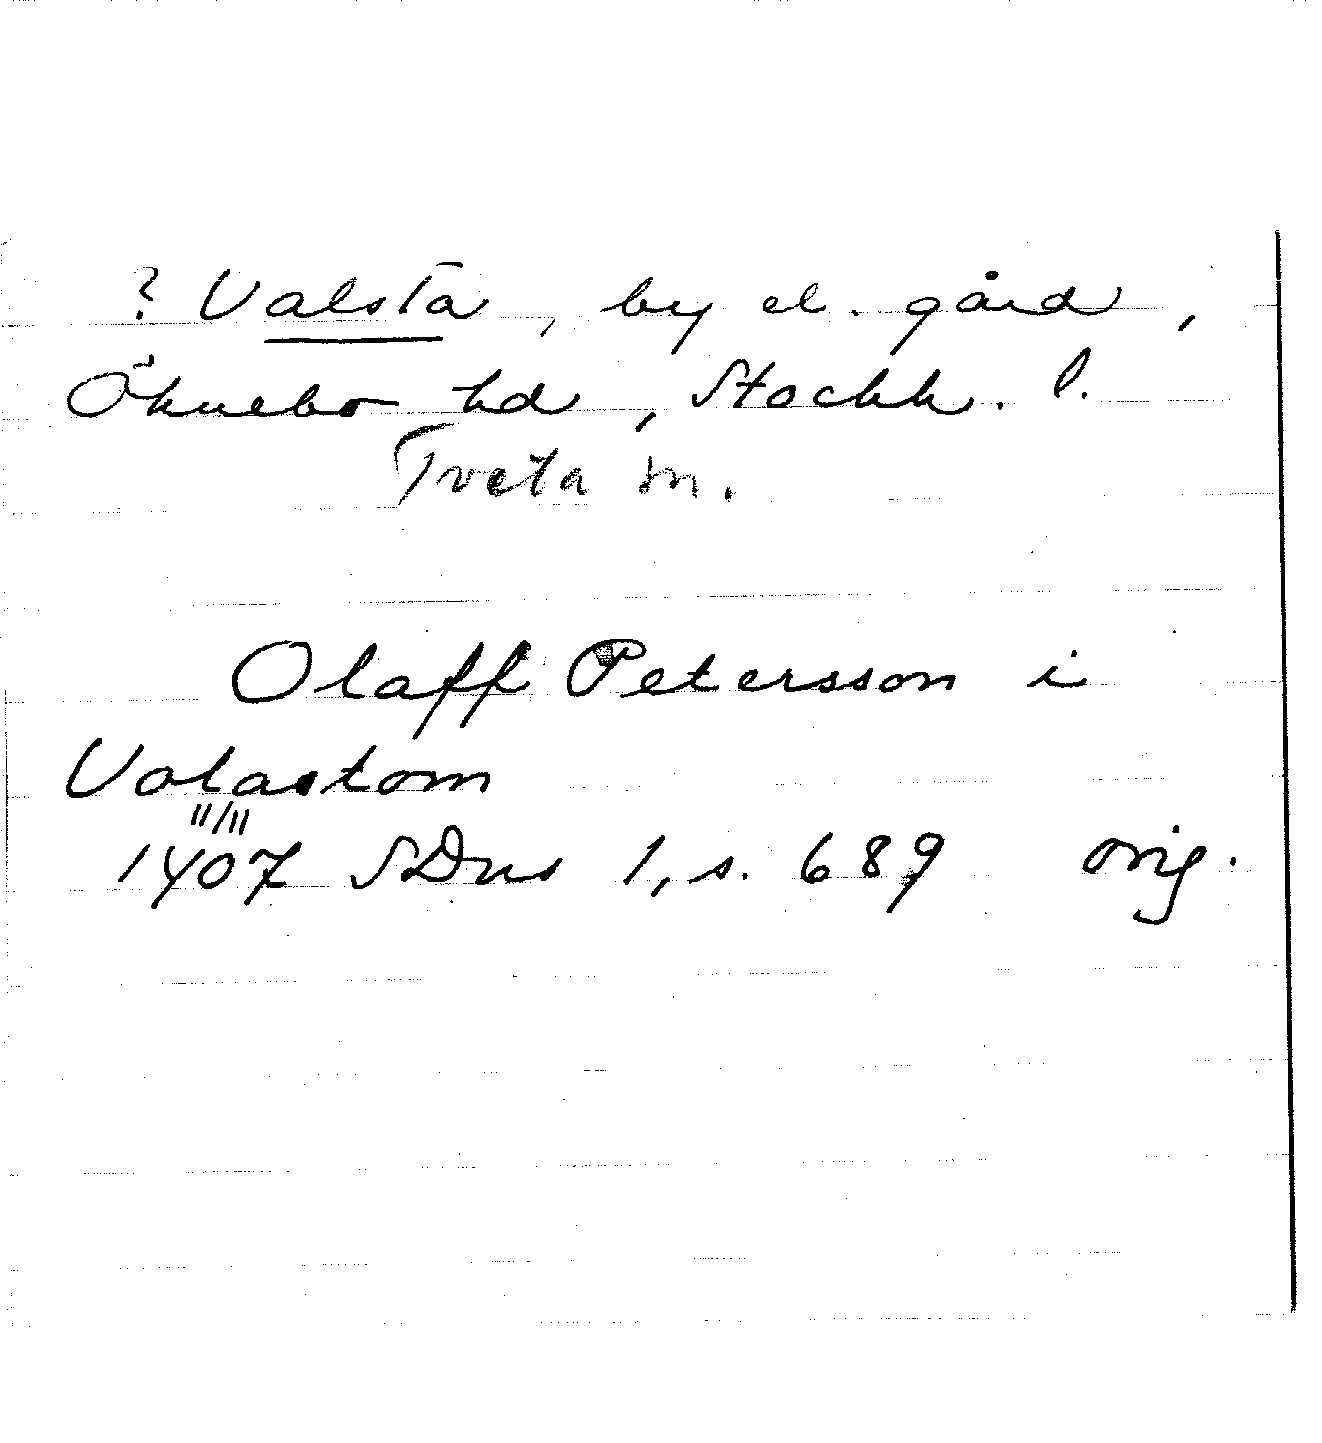 ? Valsta, by el. gård,
Öknebo hd, Stockh. l.
Tveta sn.
Olaff Petersson i
Valastom
11/11
1407 SDns 1, s. 689 orig.